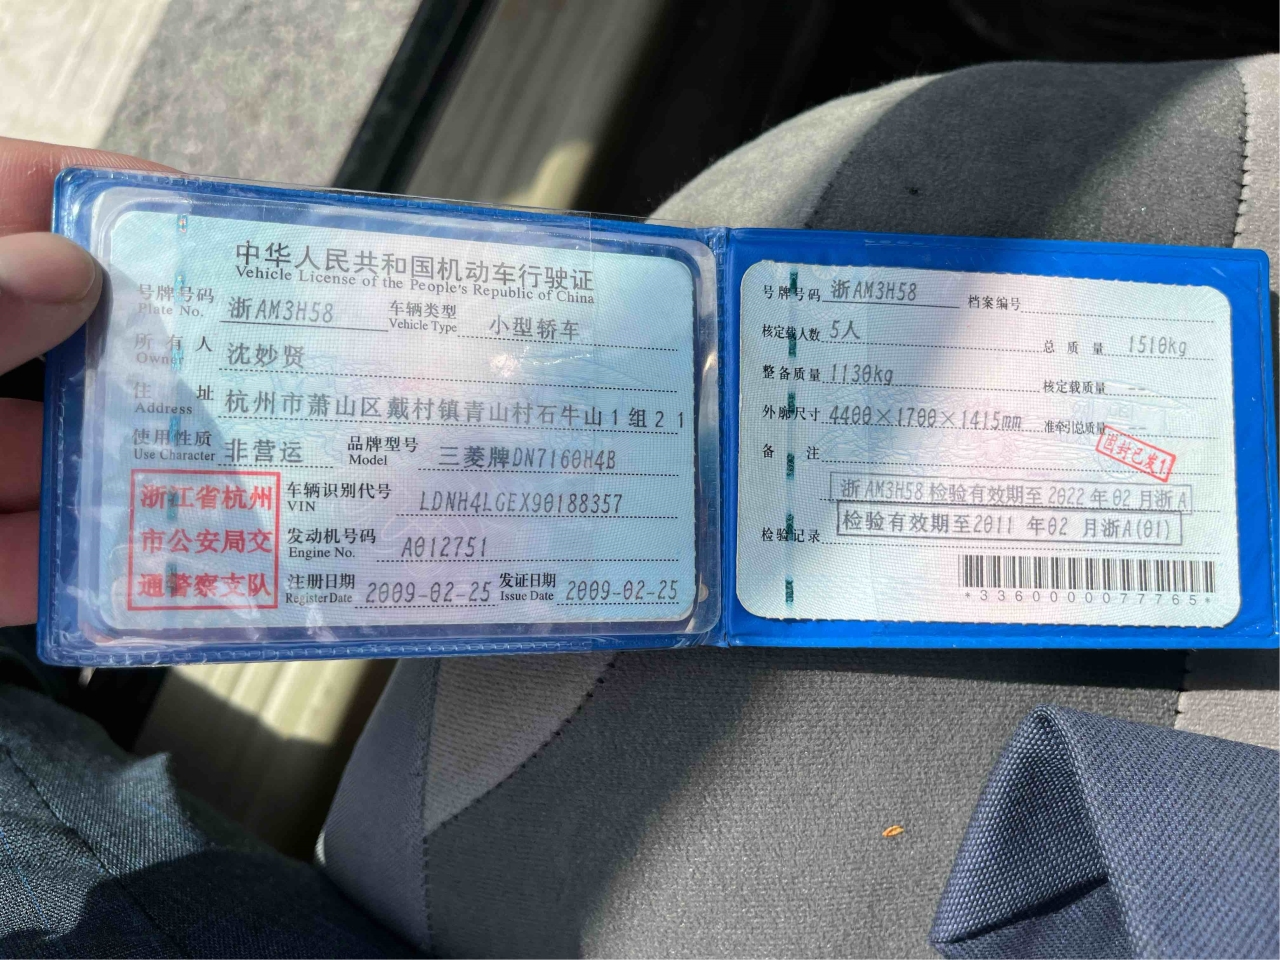 中华人民共和国机动车行驶证
Vehicle License of the People's Republic of China
号牌号码 浙AM3H58 车辆类型 小型轿车
Plate No. Vehicle Type
所有人 沈妙贤
Owner
住址 杭州市萧山区戴村镇青山村石牛山1组21
Address
使用性质 非营运 品牌型号 三菱牌DN7160H4B
Use Character Model
浙江省杭州
市公安局交
通警察支队
车辆识别代号 LDNH4LGEX90188357
VIN
发动机号码 A012751
Engine No.
注册日期 2009-02-25 发证日期 2009-02-25
Register Date Issue Date
号牌号码 浙AM3H58 档案编号
核定载人数 5人 总质量 1510kg
整备质量 1130kg 核定载质量 --
外廓尺寸 4400×1700×1415mm 准牵引总质量 --
备注
浙AM3H58 检验有效期至2022年02月浙A
检验记录 检验有效期至2011年02月浙A(01)
*3360000077765*